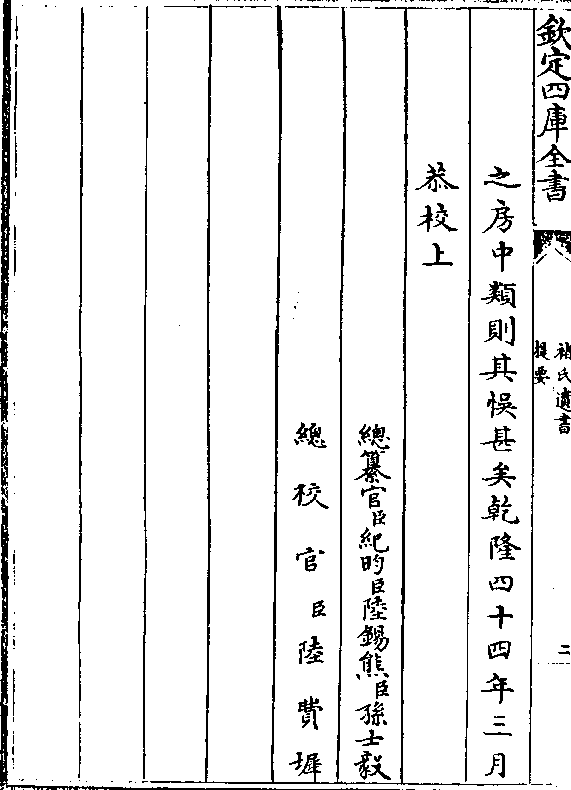 欽定四庫全書
褚氏遺書
提要
二
之房中類則其悞甚矣乾隆四十四年三月
恭校上
總纂官臣紀昀臣陸錫熊臣孫士毅
總校官臣陸費墀